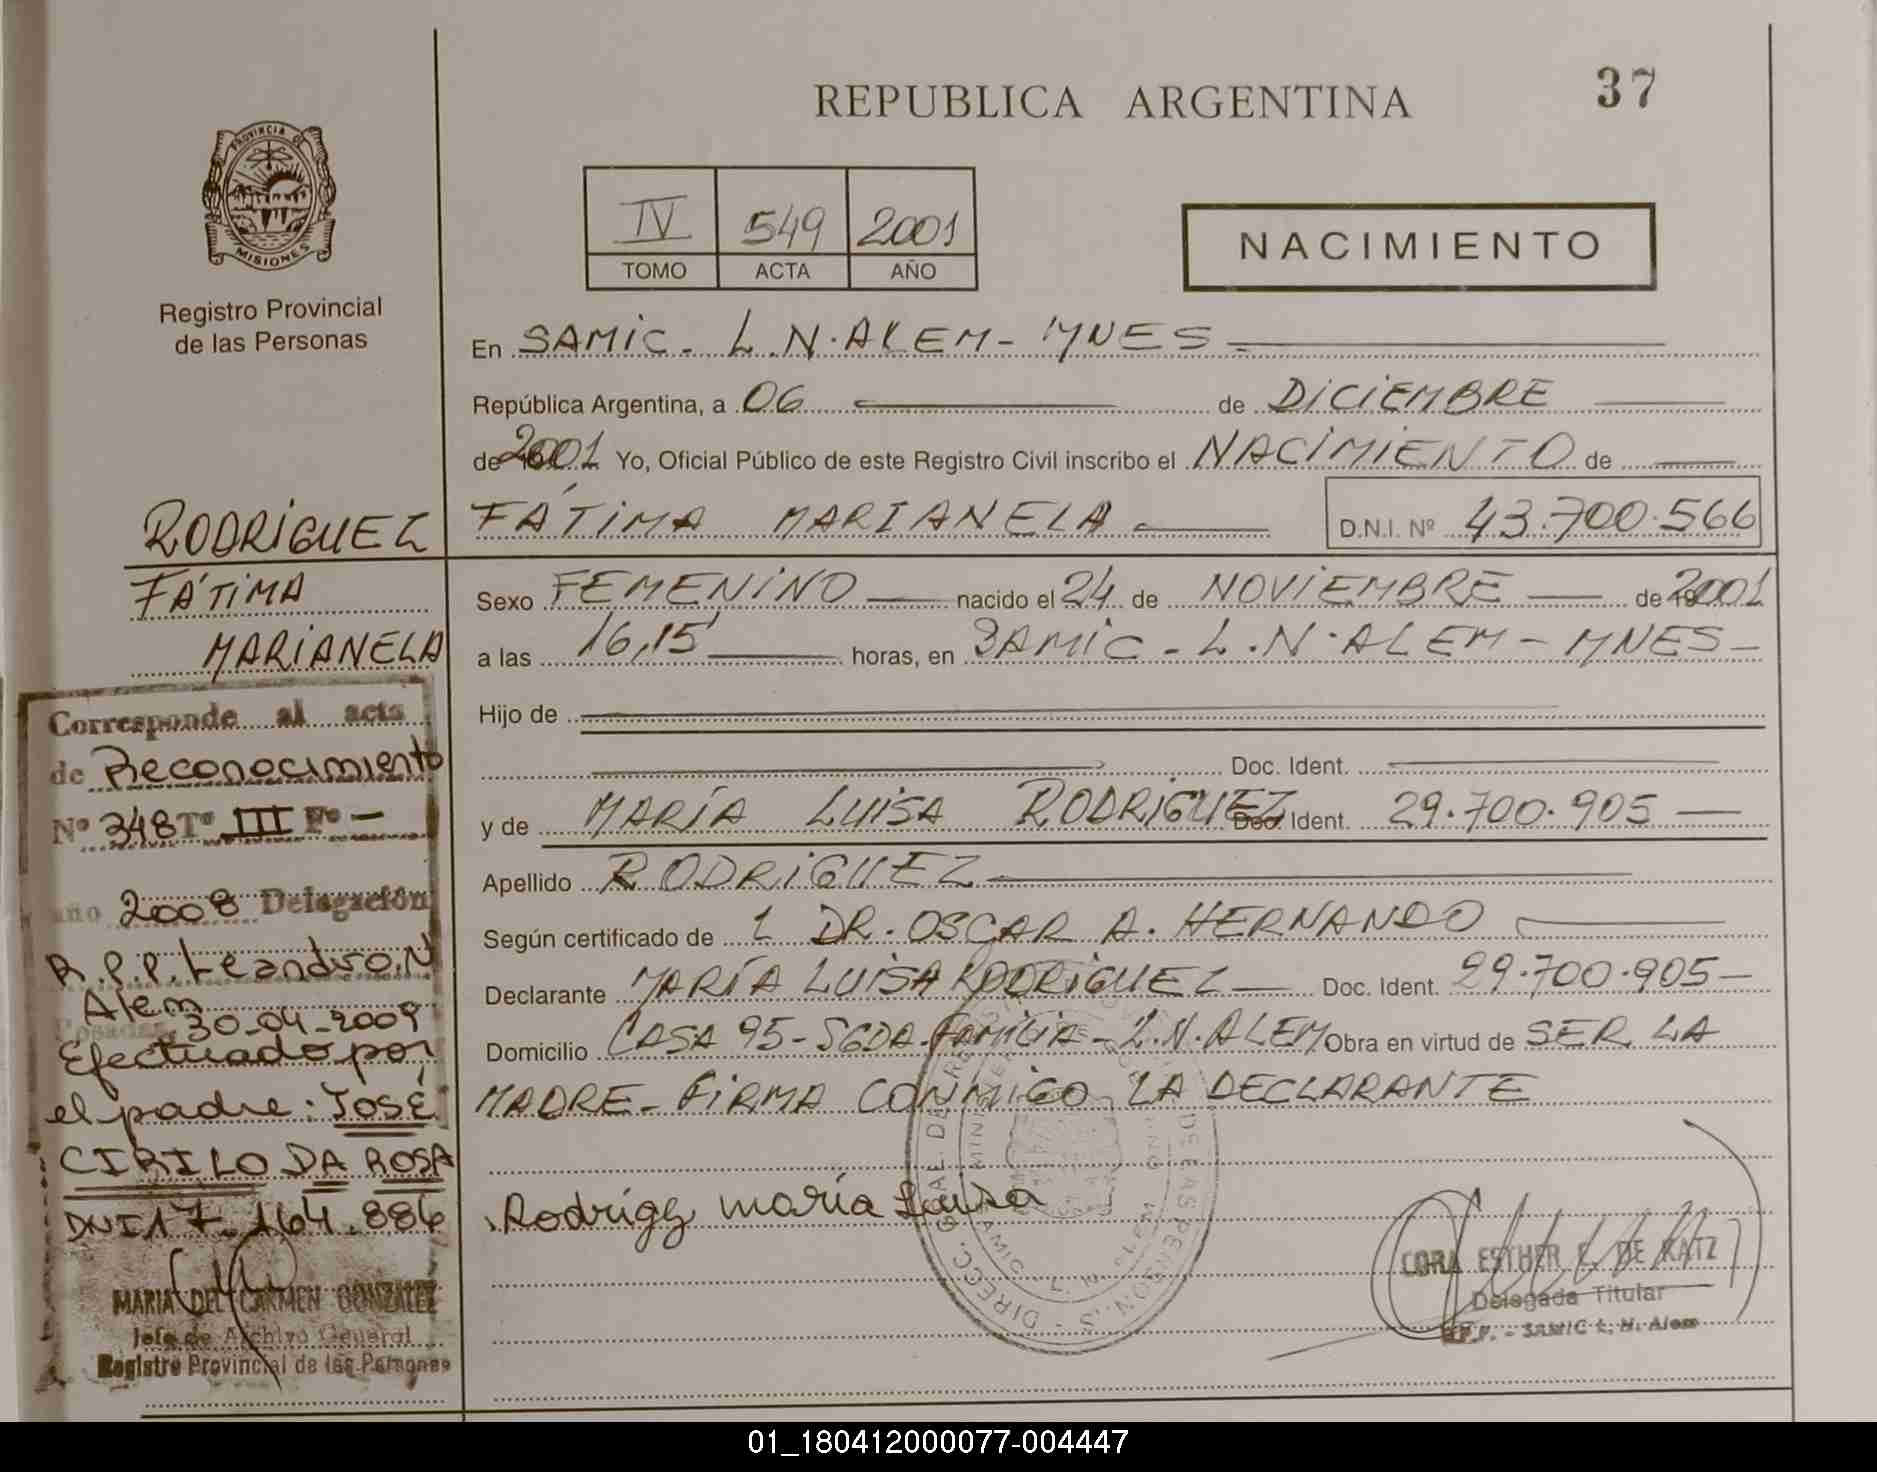 REPUBLICA ARGENTINA
37
PROVINCIA DE
MISIONES
Registro Provincial
de las Personas
IV 549 2001
TOMO ACTA AÑO
NACIMIENTO
En SAMIC - L.N. ALEM - MNES -
República Argentina, a 06 de DICIEMBRE
de 2001 Yo, Oficial Público de este Registro Civil inscribo el NACIMIENTO de
FÁTIMA MARIANELA D.N.I. Nº 43.700.566
RODRIGUEZ
FÁTIMA
MARIANELA
Sexo FEMENINO nacido el 24 de NOVIEMBRE de 2001
a las 16,15 horas, en SAMIC - L.N. ALEM - MNES -
Hijo de
Doc. Ident.
y de MARÍA LUISA RODRIGUEZ Doc. Ident. 29.700.905 -
Apellido RODRIGUEZ
Según certificado de 1 DR. OSCAR A. HERNANDO
Declarante MARÍA LUISA RODRIGUEZ Doc. Ident. 29.700.905 -
Domicilio CASA 95 - SGDA. FAMILIA - L.N. ALEM Obra en virtud de SER LA
MADRE - FIRMA CONMIGO LA DECLARANTE
Rodrigz maría Luisa
CORA ESTHER F. DE KATZ
Delegada Titular
- SAMIC L. N. Alem
Corresponde al acta
de Reconocimiento
Nº 348 Tº III Fº -
año 2008 Delegación
R.P.P. Leandro N
Alem
Posadas, 30-04-2009
Efectuado por
el padre: JOSÉ
CIRILO DA ROSA
DNI 17.164.886
MARIA DEL CARMEN GONZALEZ
Jefe de Archivo General
Registro Provincial de las Personas
01_180412000077-004447